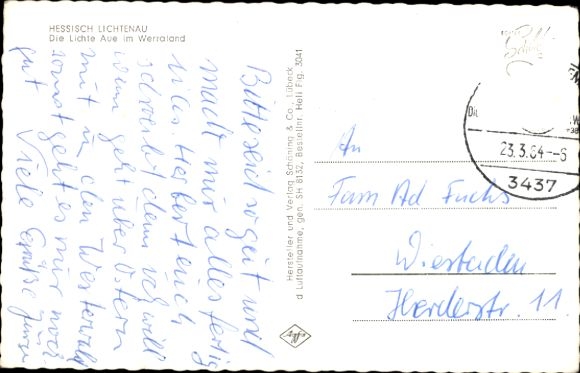 HESSISCH LICHTENAU
Die Lichte Aue im Werraland
Bitte seid so gut und
macht mir alles fertig
Herbert euch
schreibt dem ich will
dem geht über Ostern
mit in den Westerwald
sonst geht es mir noch
gut Viele Grüße
Hersteller und Verlag Schöning & Co., Lübeck
d Luftaufnahme, gen. SH 8132, Bestellnr. Heli Fig. 3041
Agfa
23.3.64-6
3437
An
Fam Ad Fuchs
Wiesbaden
Herderstr. 11